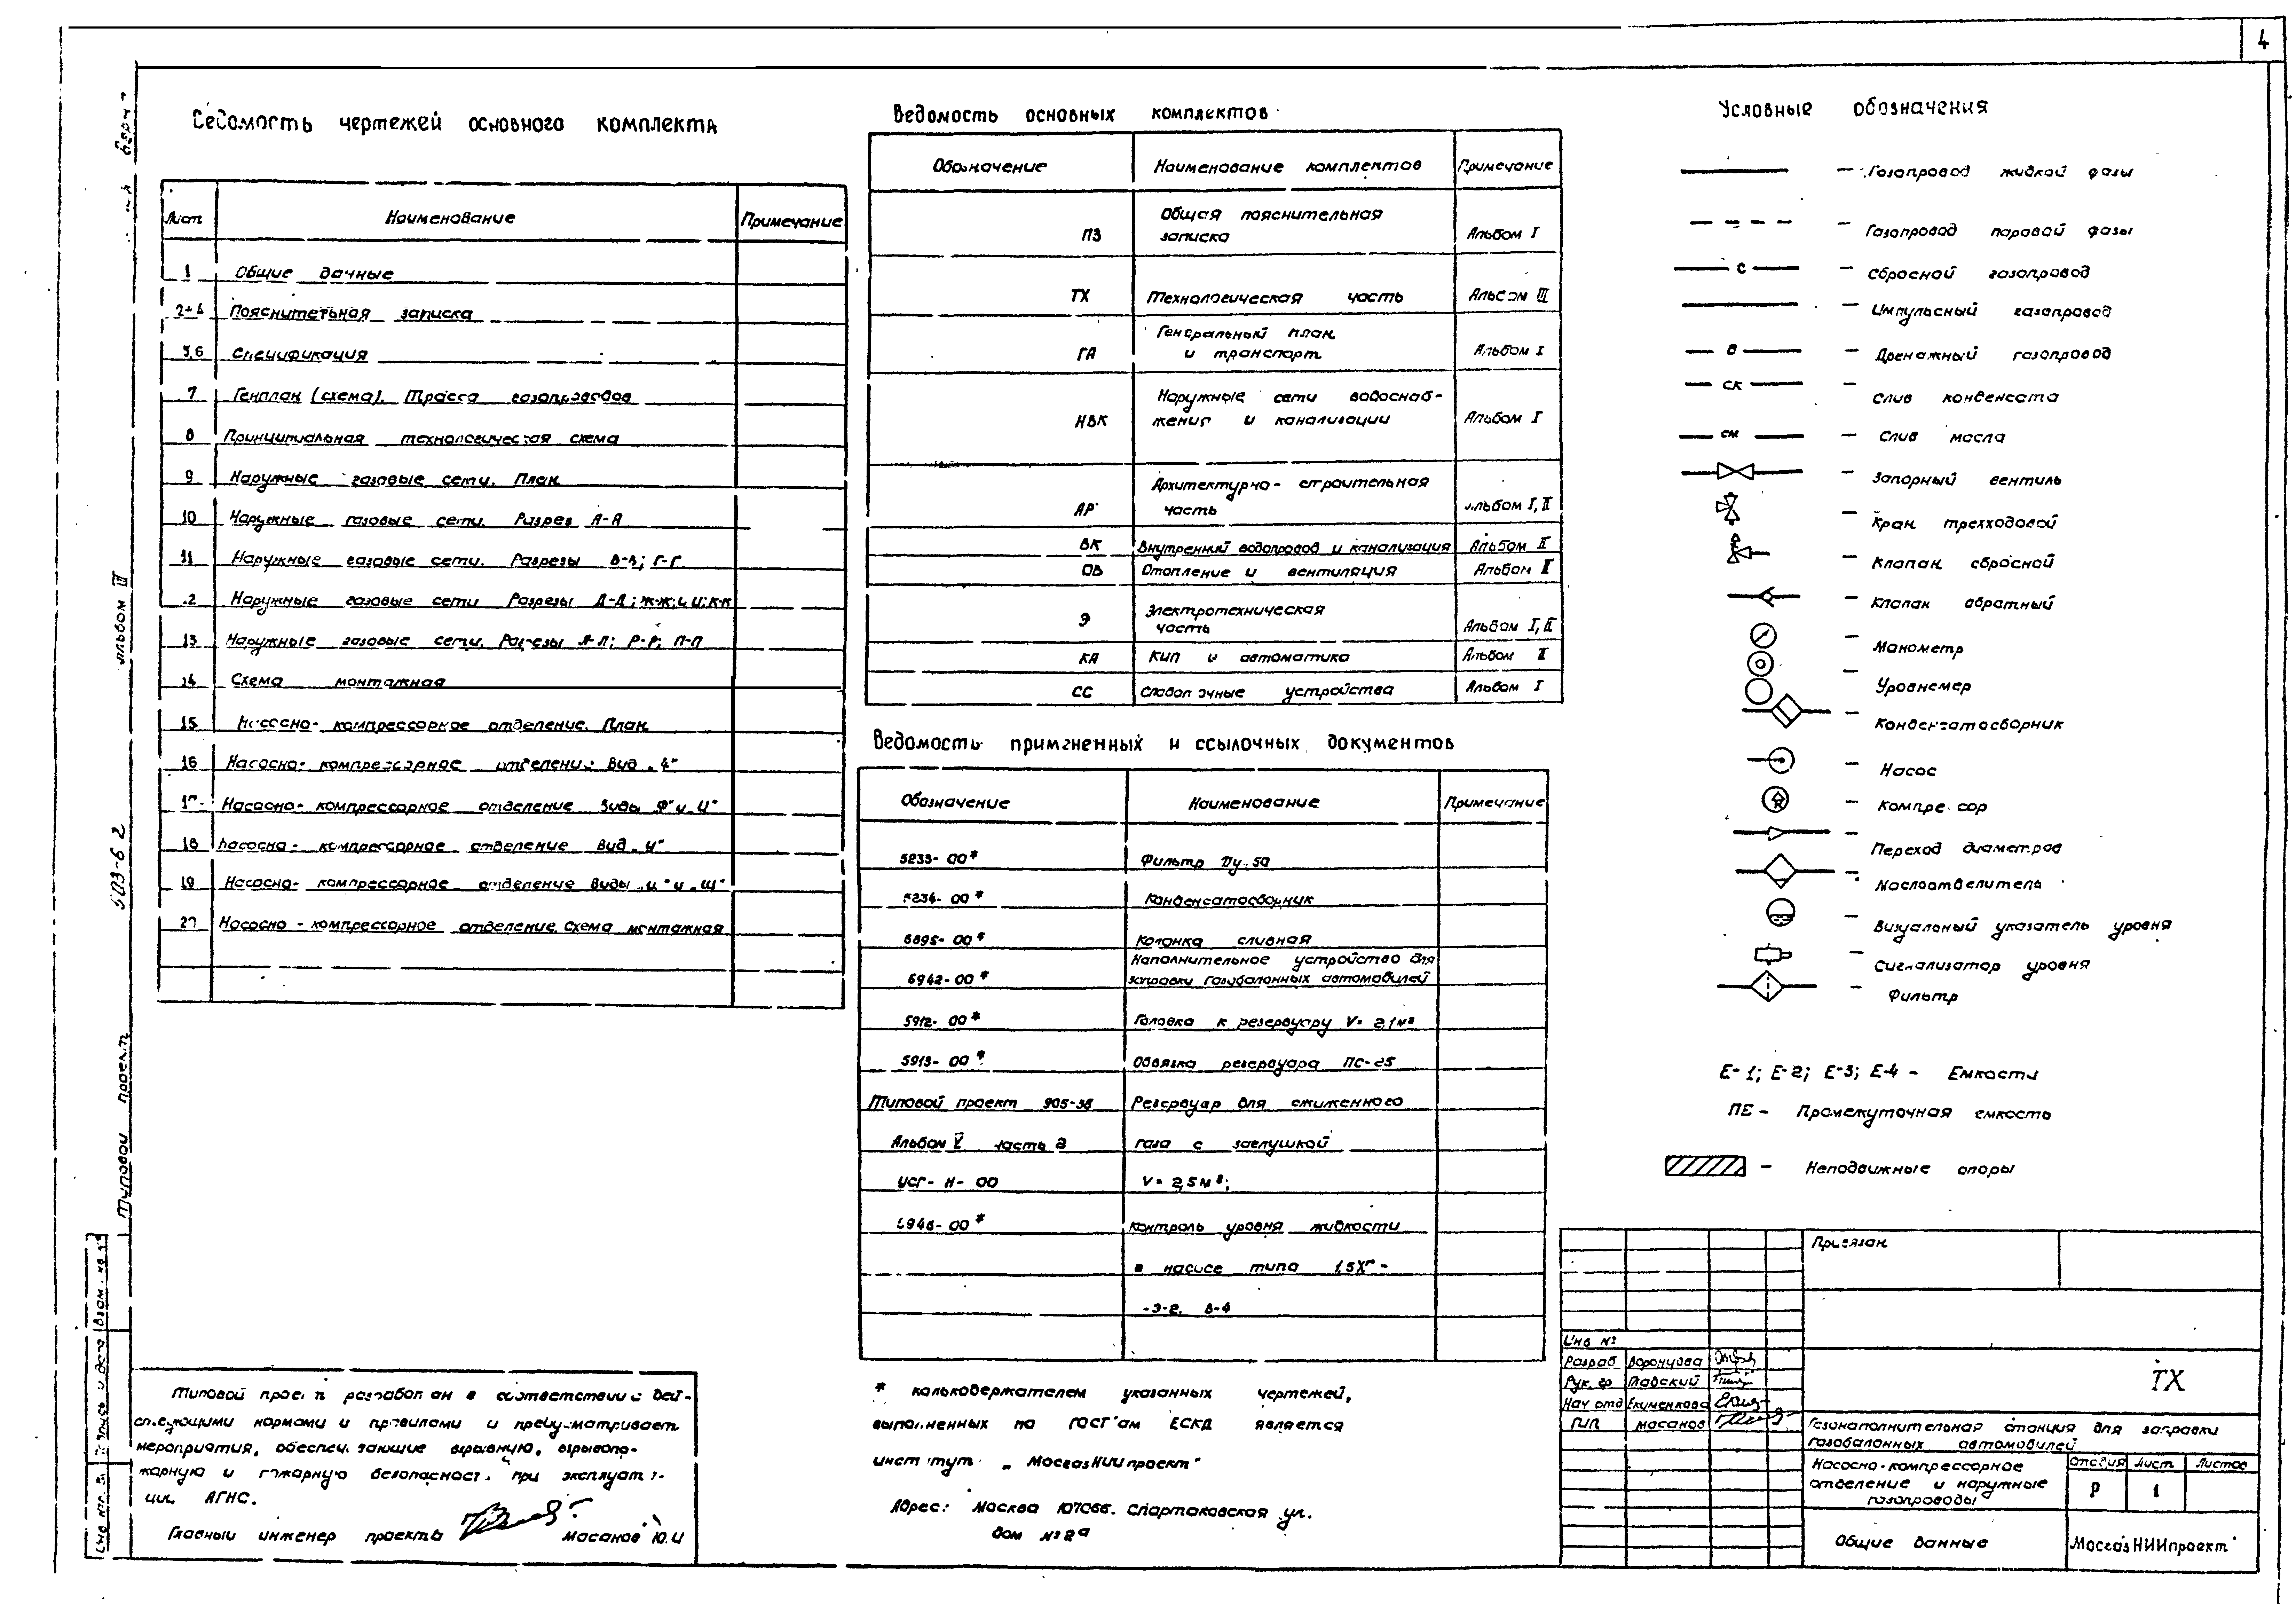 4
Ведомость чертежей основного комплекта
Лист Наименование Примечание
1 Общие данные
2÷4 Пояснительная записка
5,6 Спецификация
7 Генплан (схема). Трасса газопроводов
8 Принципиальная технологическая схема
9 Наружные газовые сети. План
10 Наружные газовые сети. Разрез А-А
11 Наружные газовые сети. Разрезы В-В; Г-Г
12 Наружные газовые сети Разрезы Д-Д; Ж-Ж; И-И; К-К
13 Наружные газовые сети. Разрезы Л-Л; Р-Р; П-П
14 Схема монтажная
15 Насосно-компрессорное отделение. План
16 Насосно-компрессорное отделение Вид
17 Насосно-компрессорное отделение Виды „Ф" и „Ц"
18 Насосно-компрессорное отделение Вид „Ч"
19 Насосно-компрессорное отделение Виды „и" и „Щ"
20 Насосно-компрессорное отделение. Схема монтажная
Ведомость основных комплектов
Обозначение Наименование комплектов Примечание
ПЗ Общая пояснительная
записка Альбом I
ТХ Технологическая часть Альбом III
Генеральный план
ГА и транспорт Альбом I
Наружные сети водоснаб-
НВК жения и канализации Альбом I
Архитектурно-строительная
АР часть Альбом I, II
ВК Внутренний водопровод и канализация Альбом II
ОВ Отопление и вентиляция Альбом II
Э Электротехническая
часть Альбом I, II
КА Кип и автоматика Альбом II
СС Слаботочные устройства Альбом I
Ведомость примененных и ссылочных документов
Обозначение Наименование Примечание
5233-00* Фильтр Ду-50
5234-00* Конденсатосборник
6895-00* Колонка сливная
Наполнительное устройство для
6942-00* заправки газобалонных автомобилей
5912-00* Головка к резервуару V=2,1м³
5913-00* Обвязка резервуара ПС-25
Типовой проект 905-38 Резервуар для сжиженного
Альбом V часть 2 газа с заглушкой
УСГ-Н-00 V=2,5м³;
6946-00* Контроль уровня жидкости
в насосе типа 1,5ХГ-
-Э-2. В-4
* калькодержателем указанных чертежей,
выполненных по ГОСТ'ам ЕСКД является
институт „МосгазНИИпроект"
Адрес: Москва 107066. Спартаковская ул.
дом №2а
Условные обозначения
– Газопровод жидкой фазы
– Газопровод паровой фазы
С – Сбросной газопровод
– Импульсный газопровод
– Дренажный газопровод
СК – Слив конденсата
СМ – Слив масла
– Запорный вентиль
– Кран трехходовой
– Клапан сбросной
– Клапан обратный
– Манометр
– Уровнемер
– Конденсатосборник
– Насос
– Компрессор
– Переход диаметров
– Маслоотделитель
– Визуальный указатель уровня
– Сигнализатор уровня
– Фильтр
Е-1; Е-2; Е-3; Е-4 – Емкости
ПЕ – Промежуточная емкость
– Неподвижные опоры
Типовой проект разработан в соответствии с дей-
ствующими нормами и правилами и предусматривает
мероприятия, обеспечивающие взрывную, взрывопо-
жарную и пожарную безопасность при эксплуата-
ции АГНС.
Главный инженер проекта Масанов Ю.И
Типовой проект 503-6 2 Альбом III
Инв № Подпись и дата Взам. инв №
Привязан
Инв №
Разраб Воронцова
Рук. гр Павский
Нач отд Екименкова
ГИП Масанов
ТХ
Газонаполнительная станция для заправки
газобалонных автомобилей
Насосно-компрессорное
отделение и наружные
газопроводы
Стадия Лист Листов
Р 1
Общие данные
МосгазНИИпроект